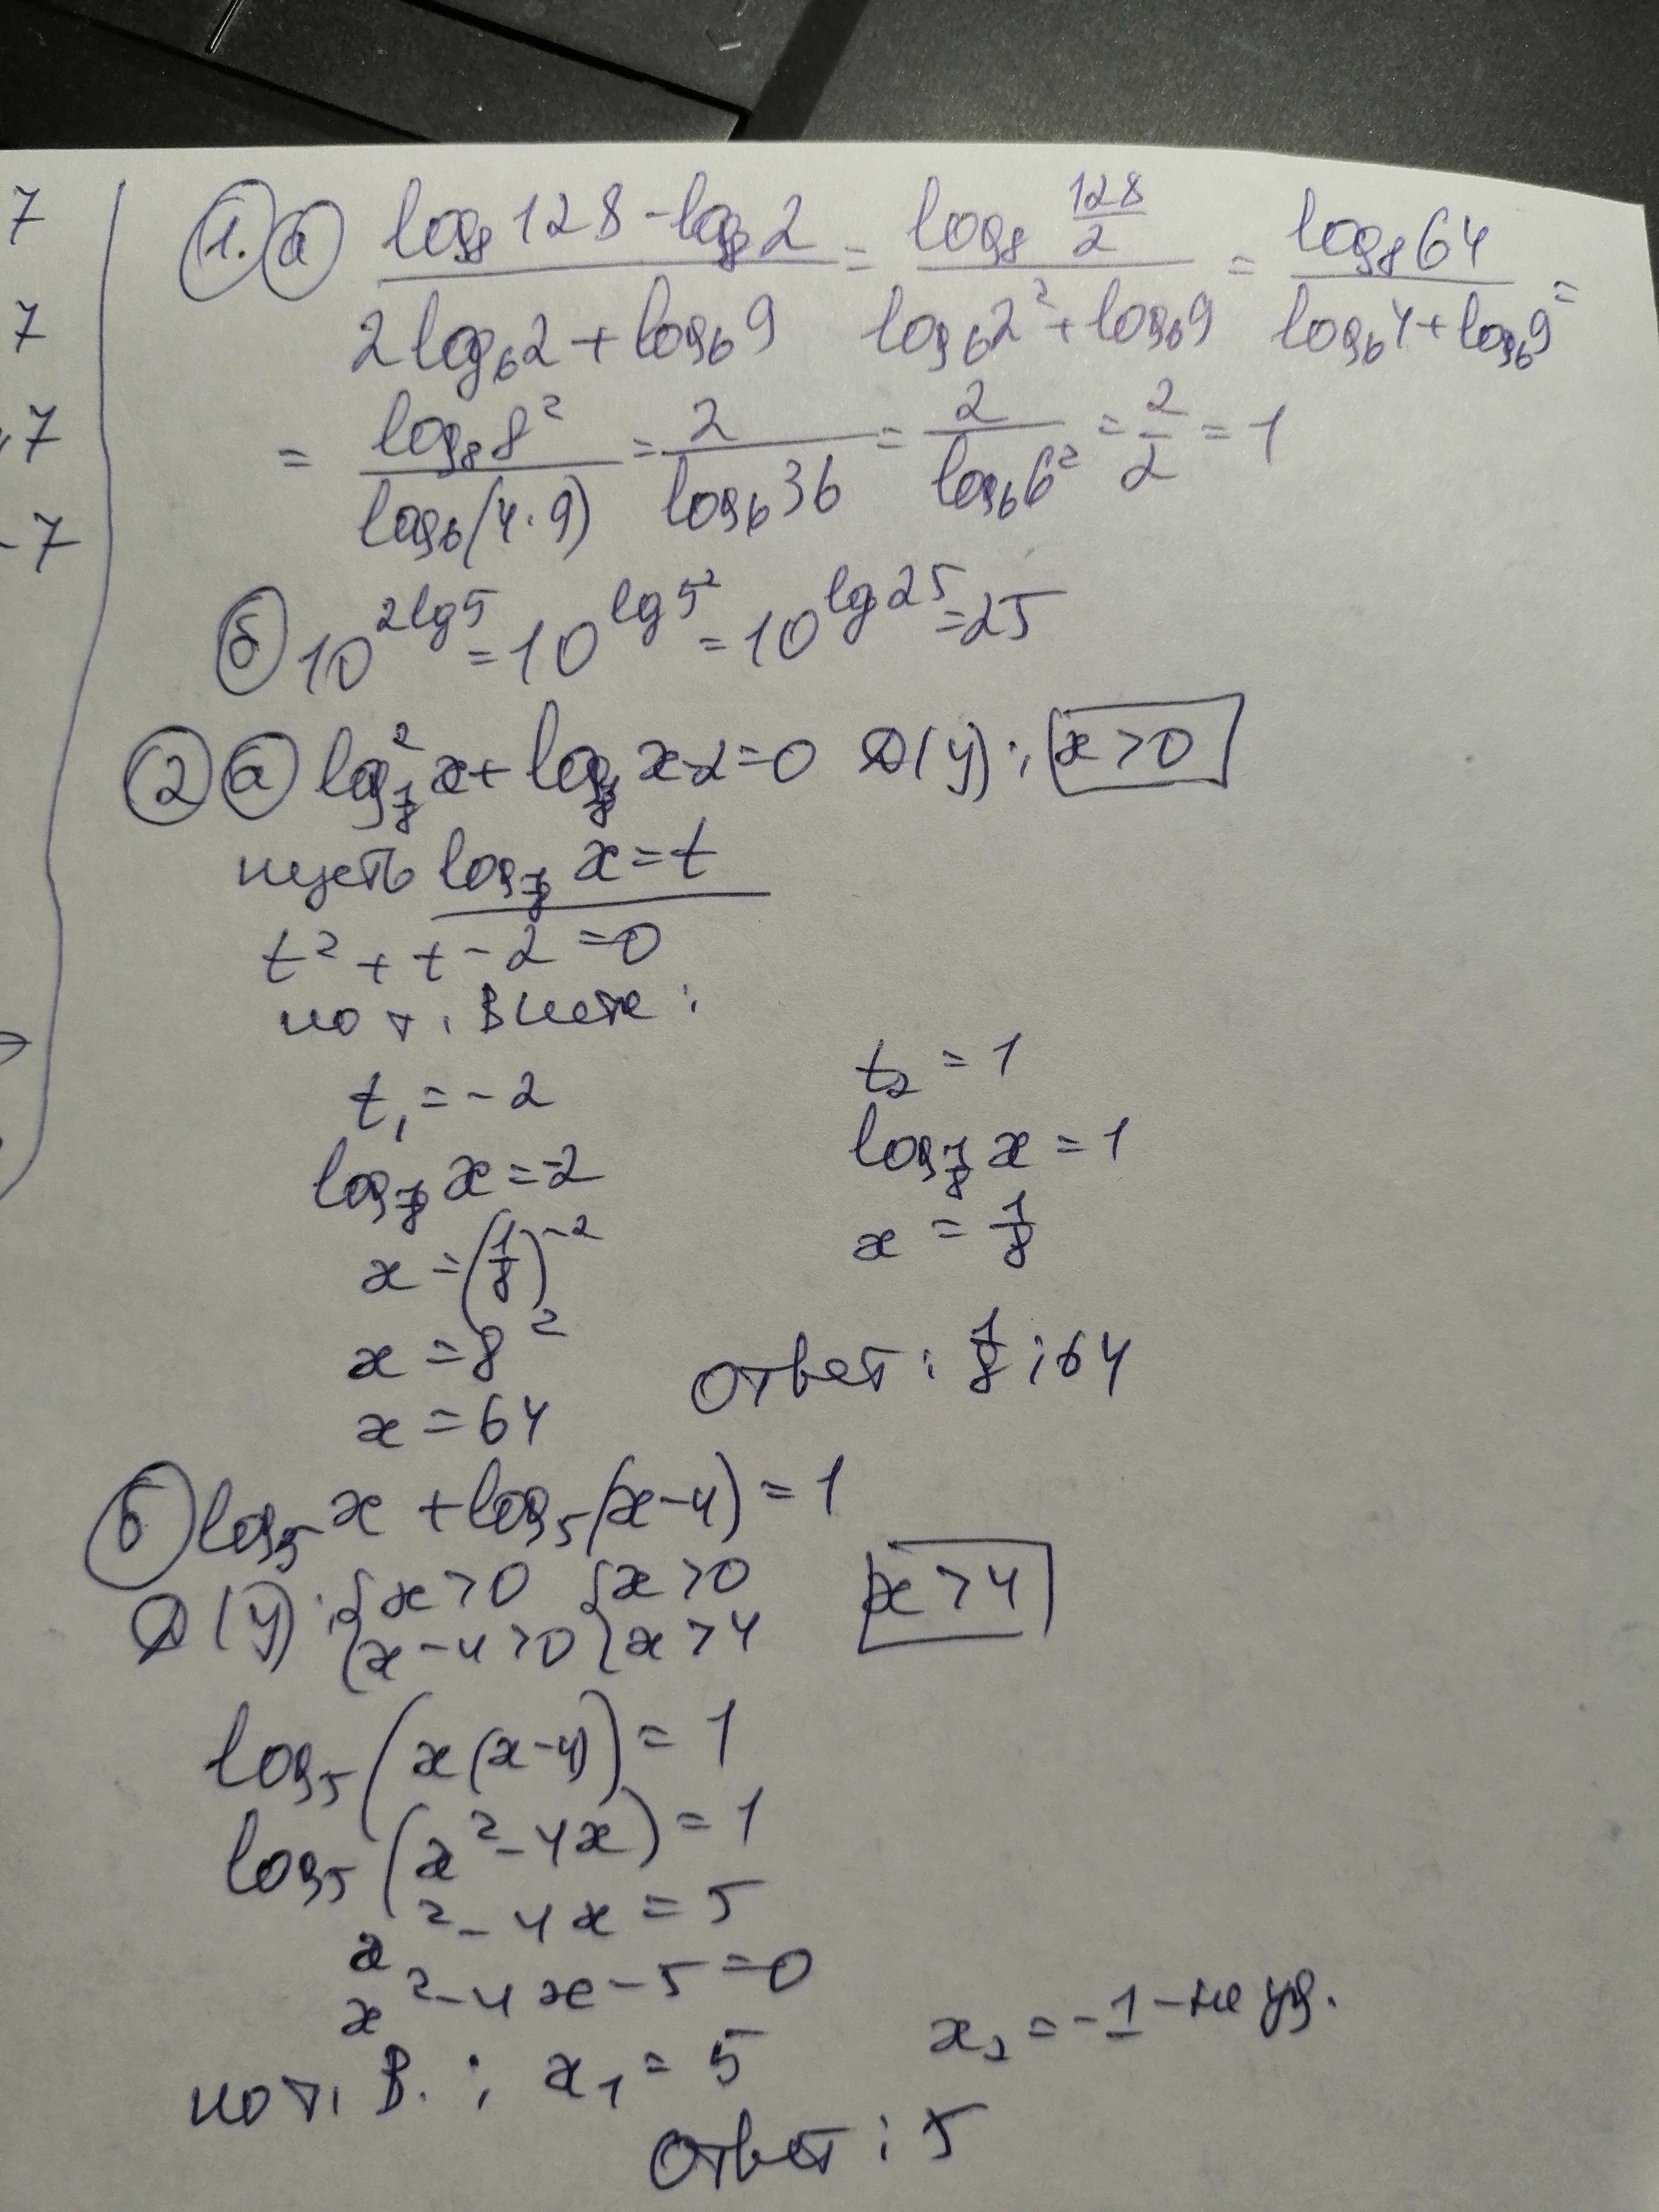 7
7
7
-7
1. а log₈128 - log₈2 / 2log₆2 + log₆9 = log₈ 128/2 / log₆2² + log₆9 = log₈64 / log₆4 + log₆9 =
= log₈8² / log₆(4·9) = 2 / log₆36 = 2 / log₆6² = 2/2 = 1
б 10^(2lg5) = 10^(lg5²) = 10^(lg25) = 25
2 а log²_(1/8) x + log_(1/8) x - 2 = 0 D(y): x > 0
пусть log_(1/8) x = t
t² + t - 2 = 0
по т. Виета:
t₁ = -2 t₂ = 1
log_(1/8) x = -2 log_(1/8) x = 1
x = (1/8)⁻² x = 1/8
x = 8²
x = 64 Ответ: 1/8; 64
б log₅ x + log₅(x-4) = 1
D(y): { x > 0 { x > 0 x > 4
{ x - 4 > 0 { x > 4
log₅(x(x-4)) = 1
log₅(x² - 4x) = 1
x² - 4x = 5
x² - 4x - 5 = 0
по т. В.: x₁ = 5 x₂ = -1 - не уд.
Ответ: 5